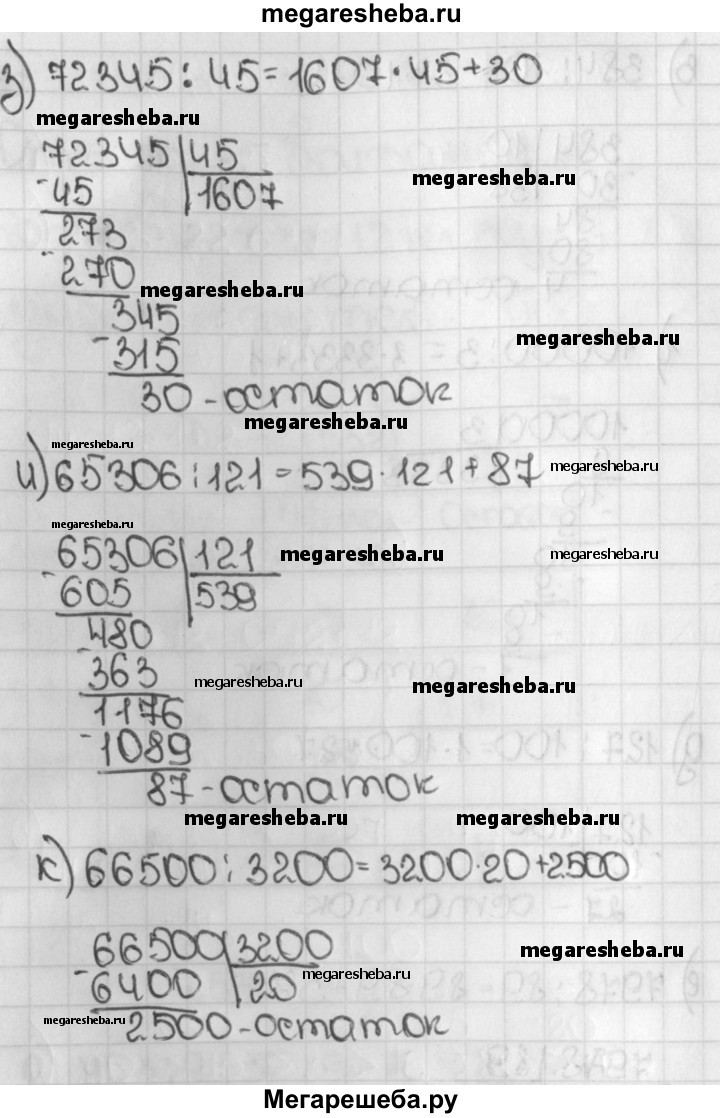 megaresheba.ru
з) 72345 : 45 = 1607 · 45 + 30
megaresheba.ru
72345 | 45
megaresheba.ru
- 45 | 1607
273
- 270
megaresheba.ru
345
- 315
megaresheba.ru
30 - остаток
megaresheba.ru
megaresheba.ru
и) 65306 : 121 = 539 · 121 + 87
megaresheba.ru
megaresheba.ru
65306 | 121
megaresheba.ru
megaresheba.ru
- 605 | 539
480
- 363
megaresheba.ru
megaresheba.ru
1176
- 1089
87 - остаток
megaresheba.ru
megaresheba.ru
к) 66500 : 3200 = 3200 · 20 + 2500
66500 | 3200
megaresheba.ru
- 6400 | 20
megaresheba.ru
megaresheba.ru
2500 - остаток
Мегарешеба.ру